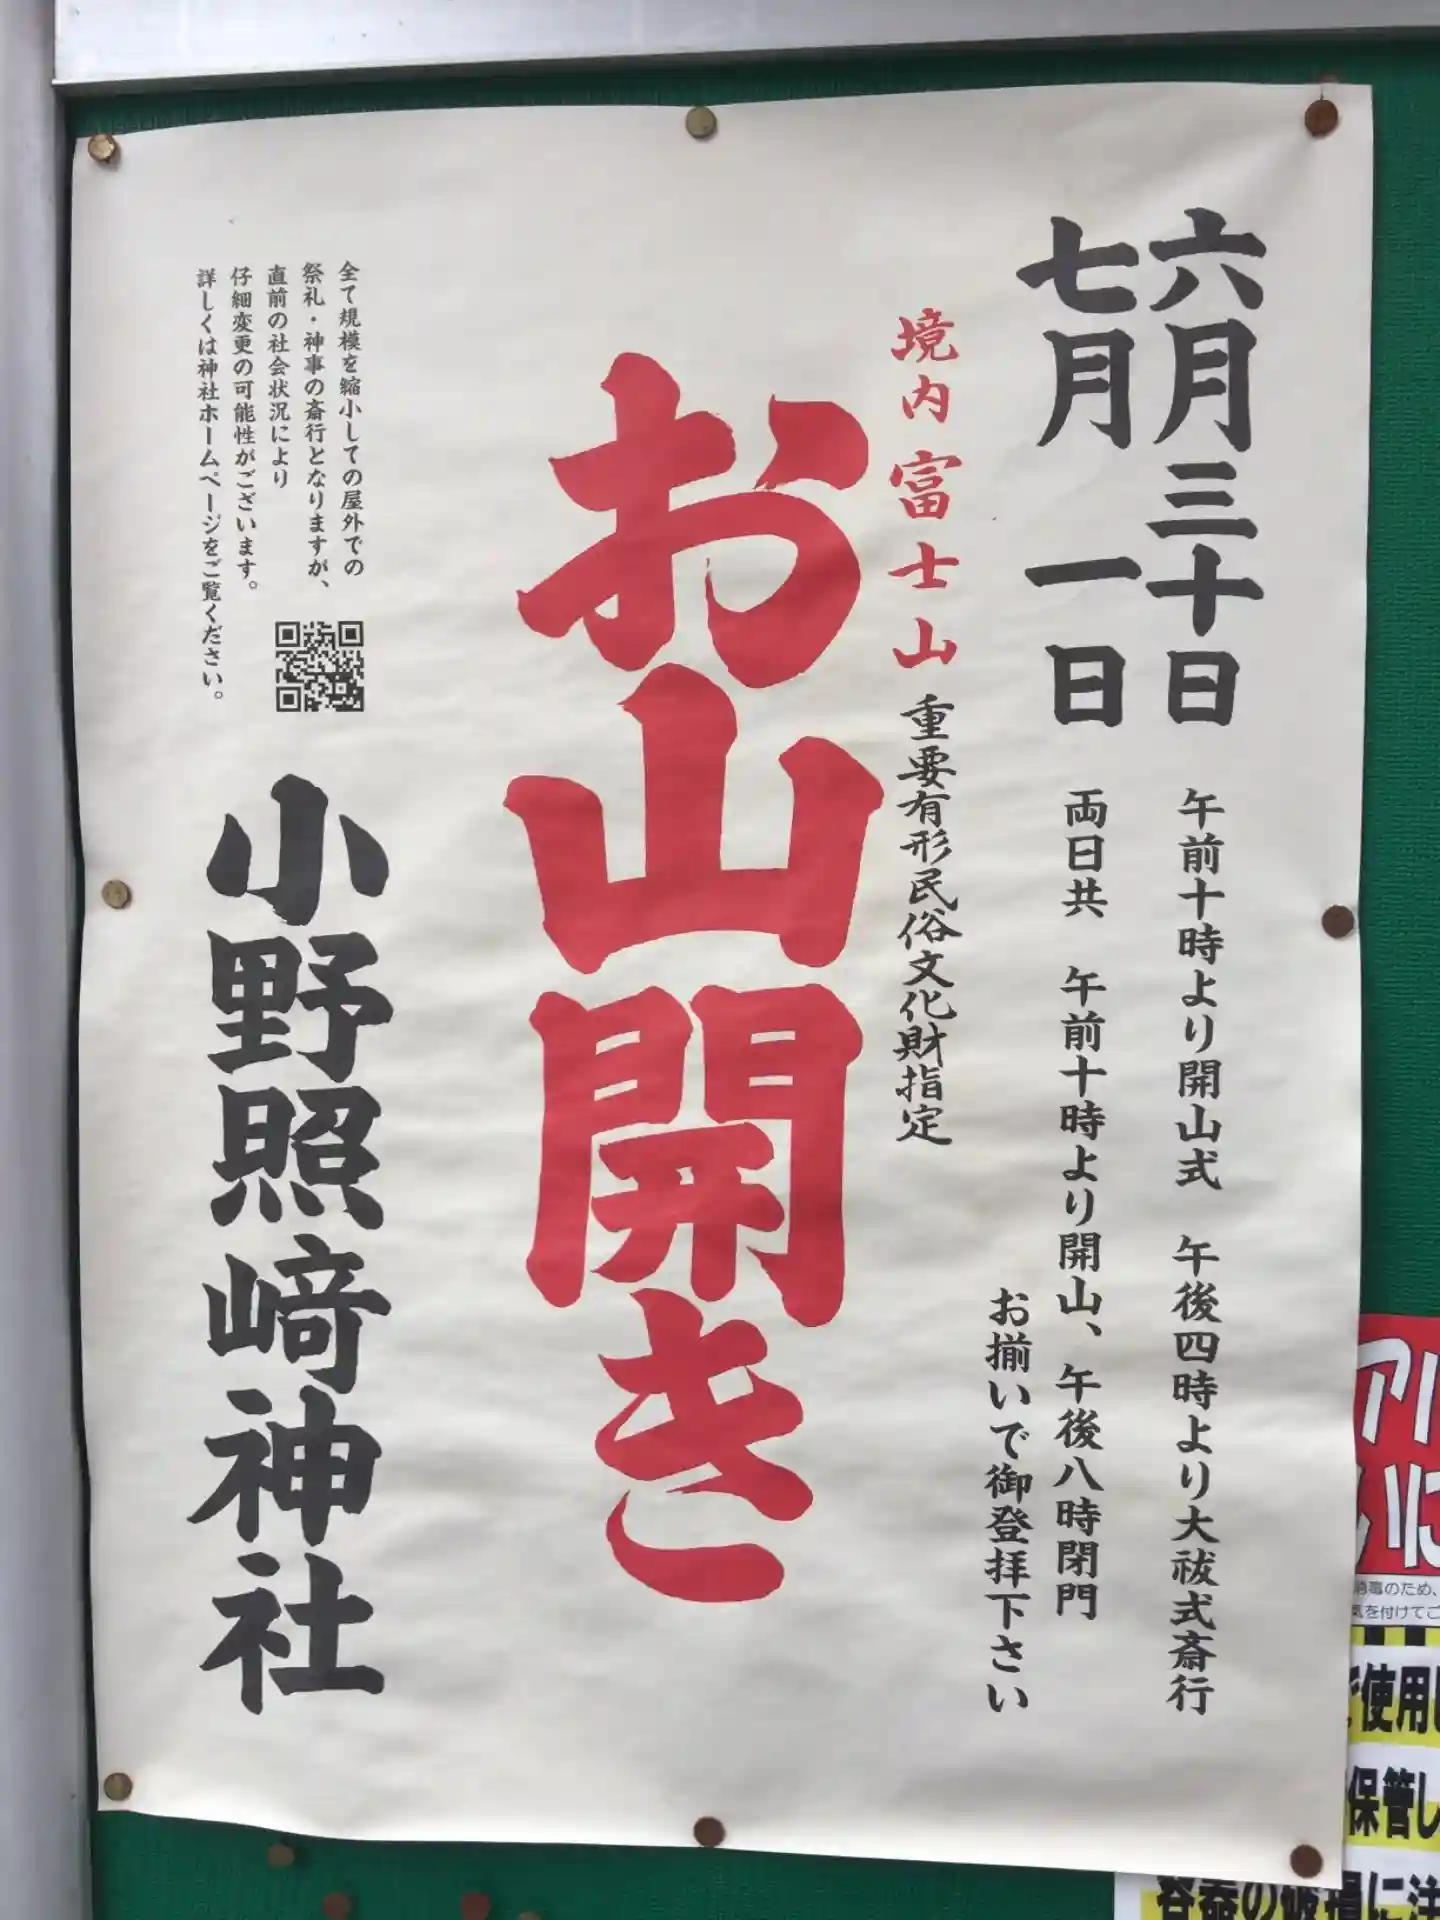 六月三十日 午前十時より開山式 午後四時より大祓式斎行
七月 一日 両日共 午前十時より開山、午後八時閉門
お揃いで御登拝下さい
境内富士山 重要有形民俗文化財指定
お山開き
全て規模を縮小しての屋外での
祭礼・神事の斎行となりますが、
直前の社会状況により
仔細変更の可能性がございます。
詳しくは神社ホームページをご覧ください。
小野照崎神社
消毒のため、
気を付けてご
ご使用し
保管し
容器の破損に注